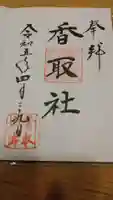 奉拝
香取社
令和五年四月二九日